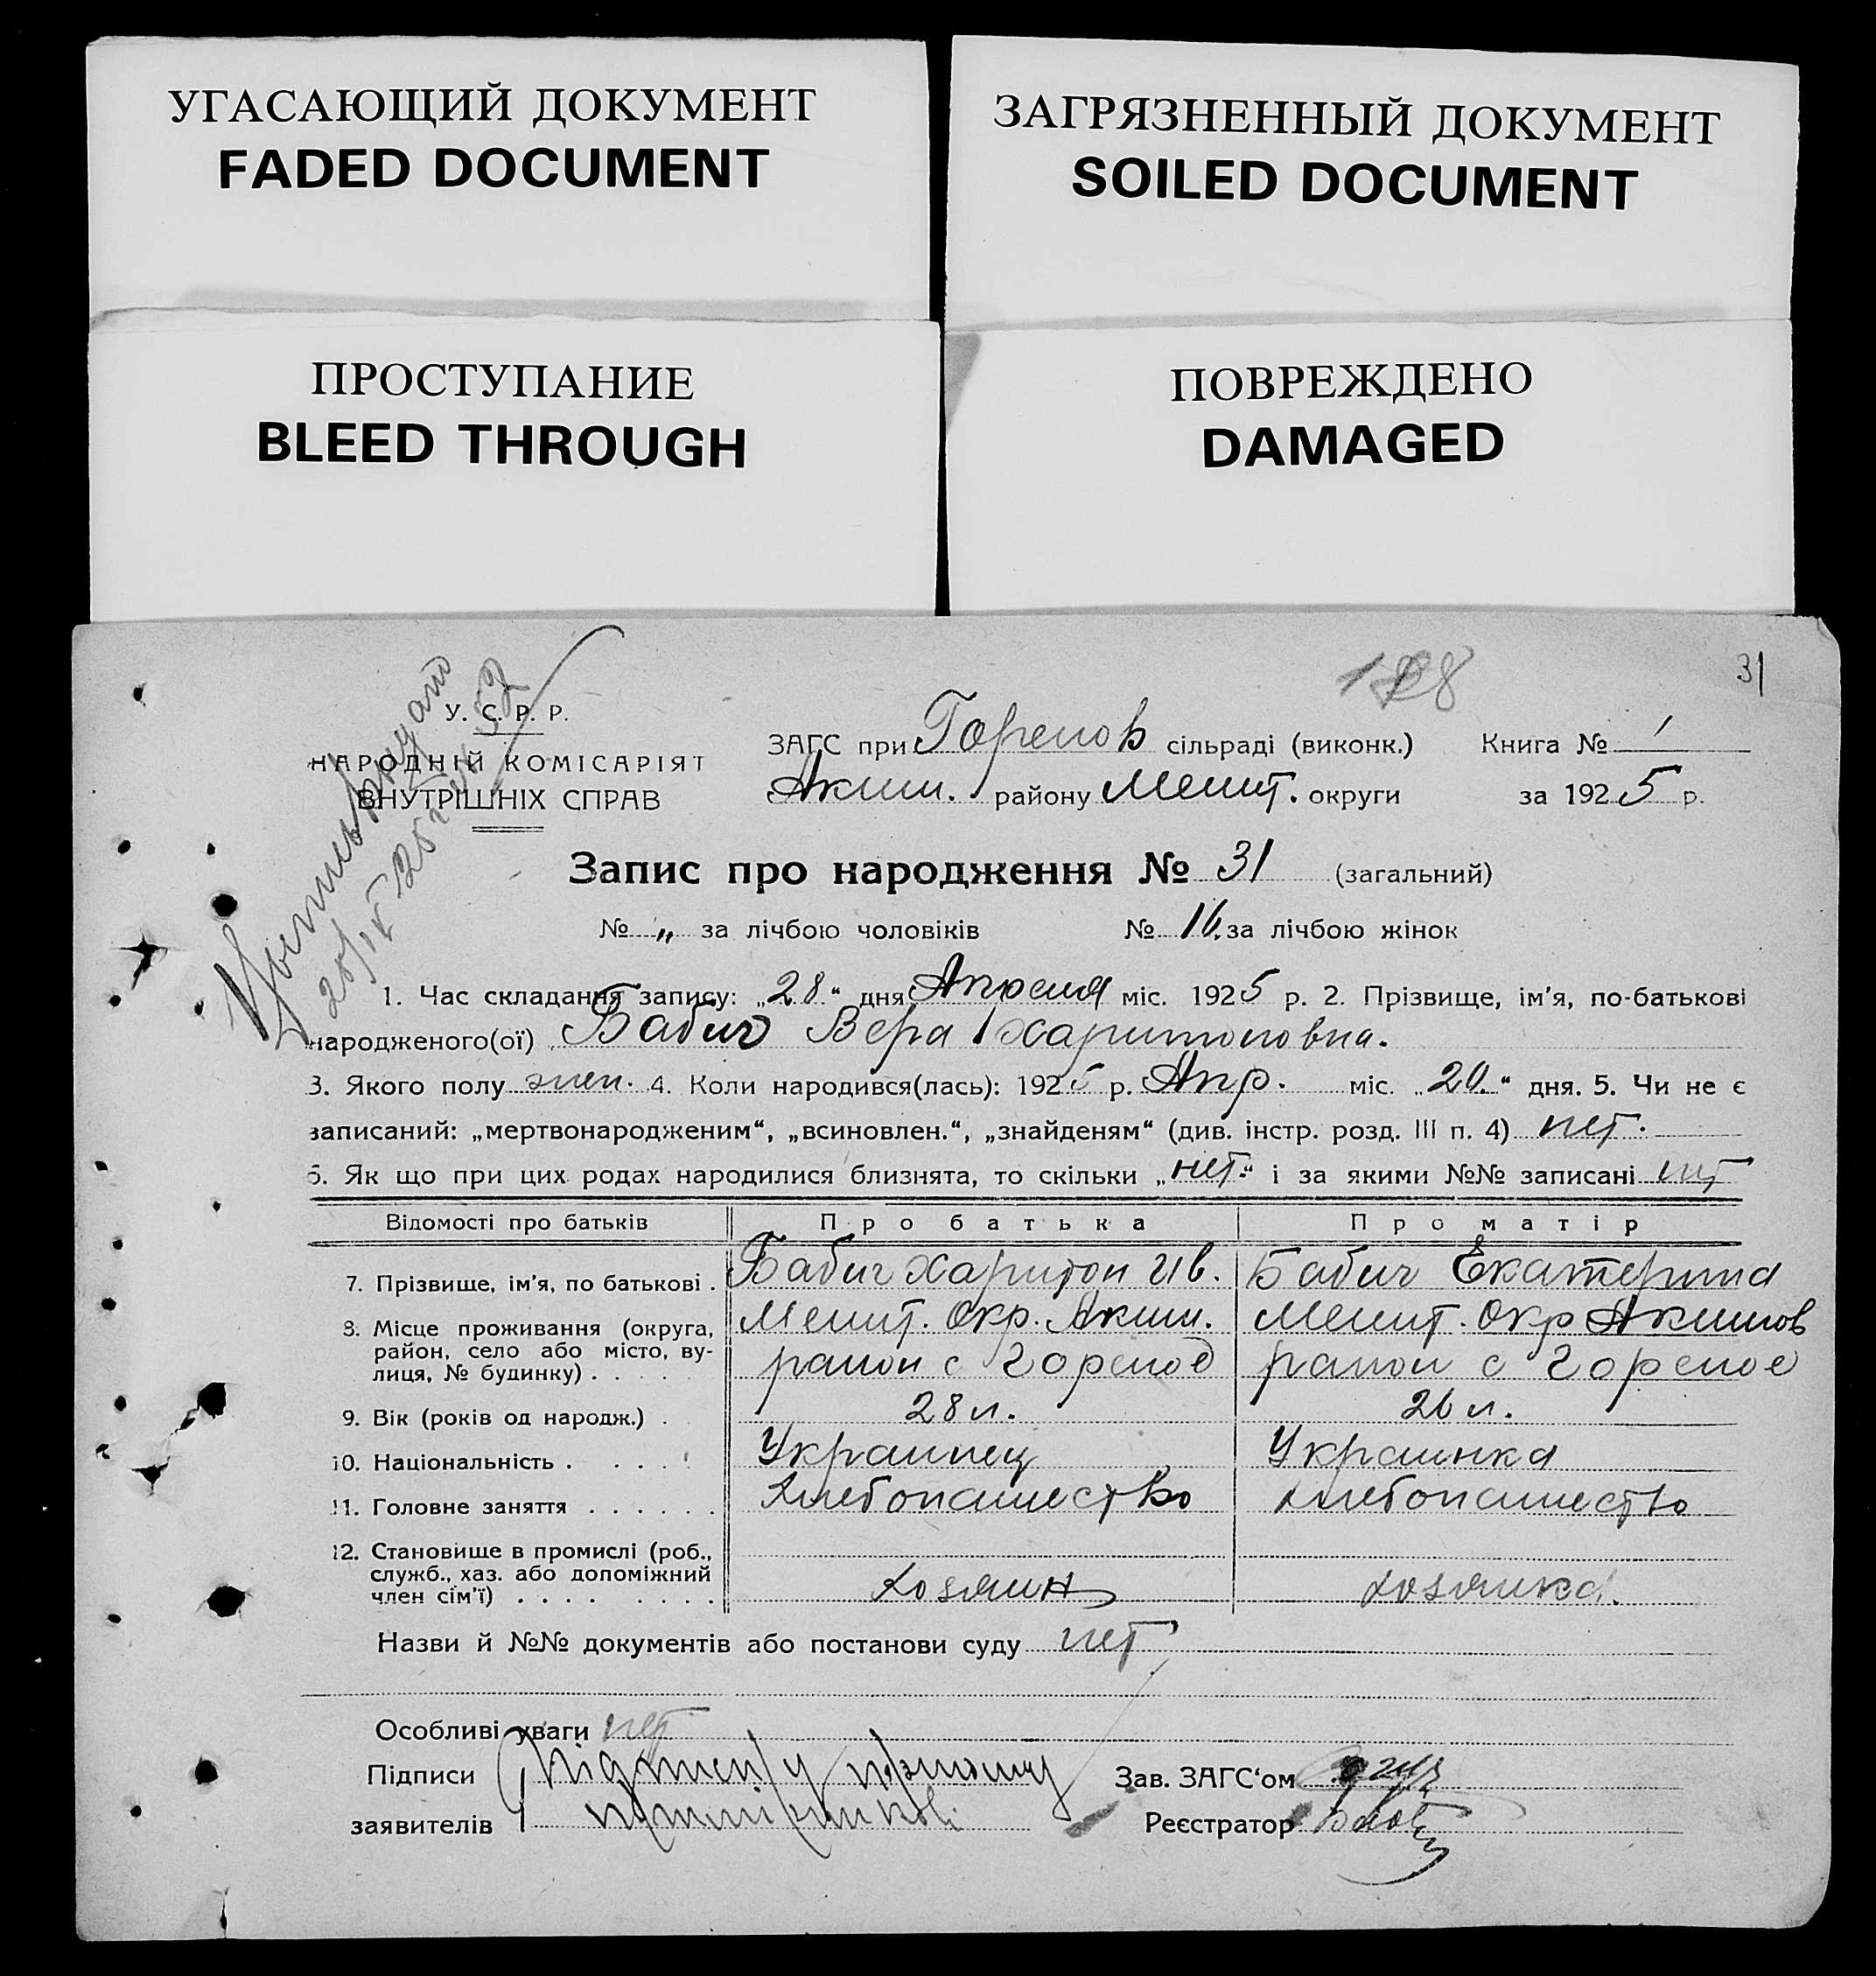 УГАСАЮЩИЙ ДОКУМЕНТ
FADED DOCUMENT
ЗАГРЯЗНЕННЫЙ ДОКУМЕНТ
SOILED DOCUMENT
ПРОСТУПАНИЕ
BLEED THROUGH
ПОВРЕЖДЕНО
DAMAGED
31
У. С. Р. Р.
НАРОДНІЙ КОМІСАРІЯТ
ВНУТРІШНІХ СПРАВ
ЗАГС при Горепов сільраді (виконк.) Книга № 1
Аким. району Мелит. округи за 1925 р.
Запис про народження № 31 (загальний)
№ „ за лічбою чоловіків № 16. за лічбою жінок
1. Час складання запису: „28“ дня Апреля міс. 1925 р. 2. Прізвище, ім'я, по-батькові
народженого(ої) Бабич Вера Харитоновна.
3. Якого полу жен. 4. Коли народився(лась): 1925 р. Апр. міс. „20.“ дня. 5. Чи не є
записаний: „мертвонародженим“, „всиновлен.“, „знайденям“ (див. інстр. розд. III п. 4) нет.
6. Як що при цих родах народилися близнята, то скільки „нет.“ і за якими №№ записані нет
Відомості про батьків Про батька Про матір
7. Прізвище, ім'я, по батькові . Бабич Харитон Ив. Бабич Екатерина
8. Місце проживання (округа, район, село або місто, вулиця, № будинку) . . . . . Мелит. Окр. Аким. Мелит. Окр Акимов
район с Горепое район с Горепое
9. Вік (років од народж.) . 28 л. 26 л.
10. Національність . . . . . Украинец Украинка
11. Головне заняття . . . . . . Хлебопашество хлебопашество
12. Становище в промислі (роб., служб., хаз. або допоміжний член сім'ї) . . . . . . . . Хозяин хозяика.
Назви й №№ документів або постанови суду нет
Особливі уваги нет
Підписи
заявителів
Зав. ЗАГС‘ом
Реєстратор